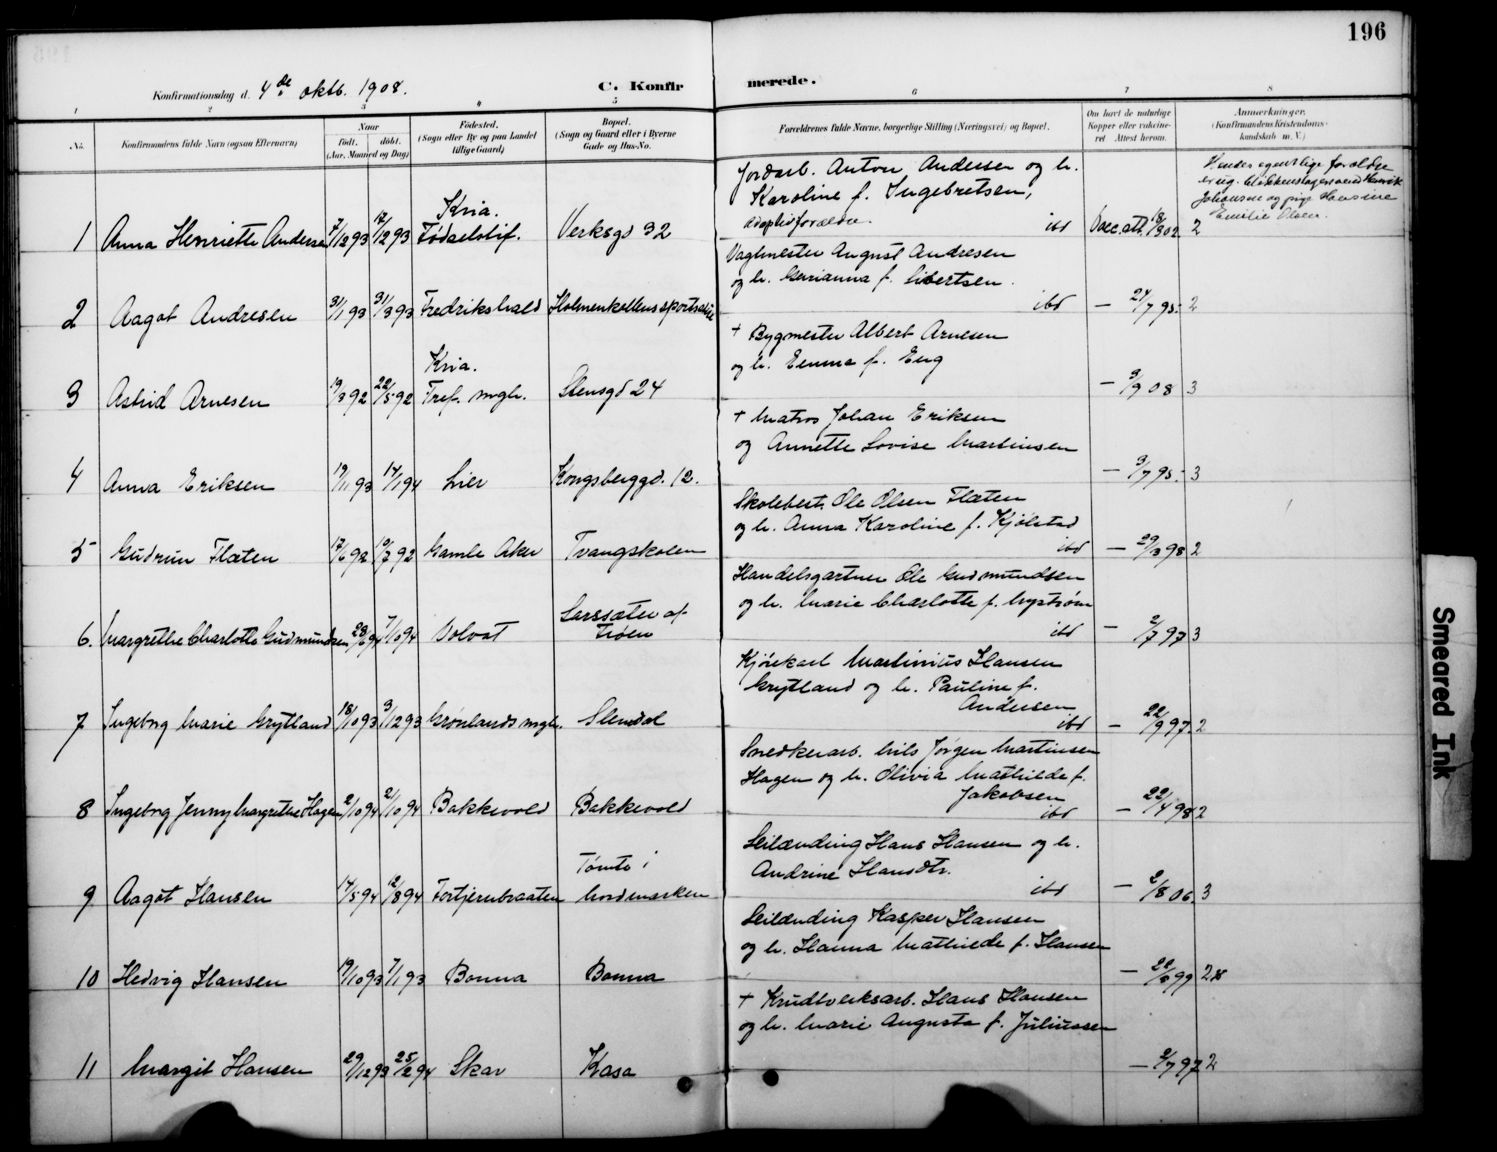 196
Konfirmationsdag d. 4de oktb. 1908.
C. Konfirmerede.
1 2 3 4 5 6 7 8
No.
Konfirmandens fulde Navn (ogsaa Efternavn)
Naar
født. døbt.
(Aar, Maaned og Dag)
Fødested.
(Sogn eller By og paa Landet
tillige Gaard)
Bopæl.
(Sogn og Gaard eller i Byerne
Gade og Hus-No.
Forældrenes fulde Navne, borgerlige Stilling (Næringsvei) og Bopæl.
Om havt de naturlige
Kopper eller vaccine-
ret Attest herom.
Anmerkninger.
(Konfirmandens Kristendoms-
kundskab m. V.)
1 Anna Henriette Andersen 7/12 93 17/12 93 Kria. Fødselstif. Verksgd 32
Jordarb. Anton Andersen og h.
Karoline f. Ingebretsen,
adoptivforældre. ibd
Vacc.att. 18/9 02. 2
Hendes egentlige forældre
er ug. blikkenslagersvend Henrik
Johansen og pige Hansine
Emilie Olsen.
2 Aagot Andresen 31/1 93 31/3 93 Fredrikshald Holmenkollens
Vagtmester August Andresen
og h. Marianna f. ibd
— 24/7 95. 2
3 Astrid Arnesen 19/3 92 22/5 92 Kria. Tref. mgh. Stensgd 24
+ Bygmester Albert Arnesen
og h. Emma f. Eng
— 3/9 08 3
4 Anna Eriksen 19/11 93 14/1 94 Lier Kongsberggd. 12.
+ Matros Johan Eriksen
og Annette Lovise Martinsen
— 3/7 95. 3
5 Gudrun Flaten 17/6 92 10/7 92 Gamle Aker Tvangskolen
Skolebest. Ole Olsen Flaten
og h. Anna Karoline f. Kjølstad
ibd — 29/3 98 2
6. Margrethe Charlotte Gudmundsen 28/6 94 7/10 94 Volvat Sarssæter af Frøen
Handelsgartner Ole Gudmundsen
og h. Marie Charlotte f. Nystrøm
ibd — 2/7 97 3
7 Ingeborg Marie Grytland 18/10 93 3/12 93 Grønlands mgh. Slemdal
Kjørekarl Martinius Hansen
Grytland og h. Pauline f.
Andersen
ibd — 22/9 97. 2
8 Ingeborg Jenny Margrethe Hagen 2/10 94 21/10 94 Bakkevold Bakkevold
Snedkerarb. Nils Jørgen Martinsen
Hagen og h. Olivia Mathilde f.
Jakobsen
ibd — 22/4 98 2
9 Aagot Hansen 14/5 94 12/8 94 Fortjernbraaten Tømte i Nordmarken
Leilænding Hans Hansen og h.
Andrine Hansdtr.
ibd — 2/8 06. 3
10 Hedvig Hansen 19/10 93 7/1 93 Bonna Bonna
Leilænding Kasper Hansen
og h. Hanna Mathilde f. Hansen
— 22/9 99 2
11 Margit Hansen 29/12 93 25/2 94 Skar Kasa
+ Krudtverksarb. Hans Hansen
og h. Marie Augusta f. Juliussen
— 2/7 97 2
Smeared Ink